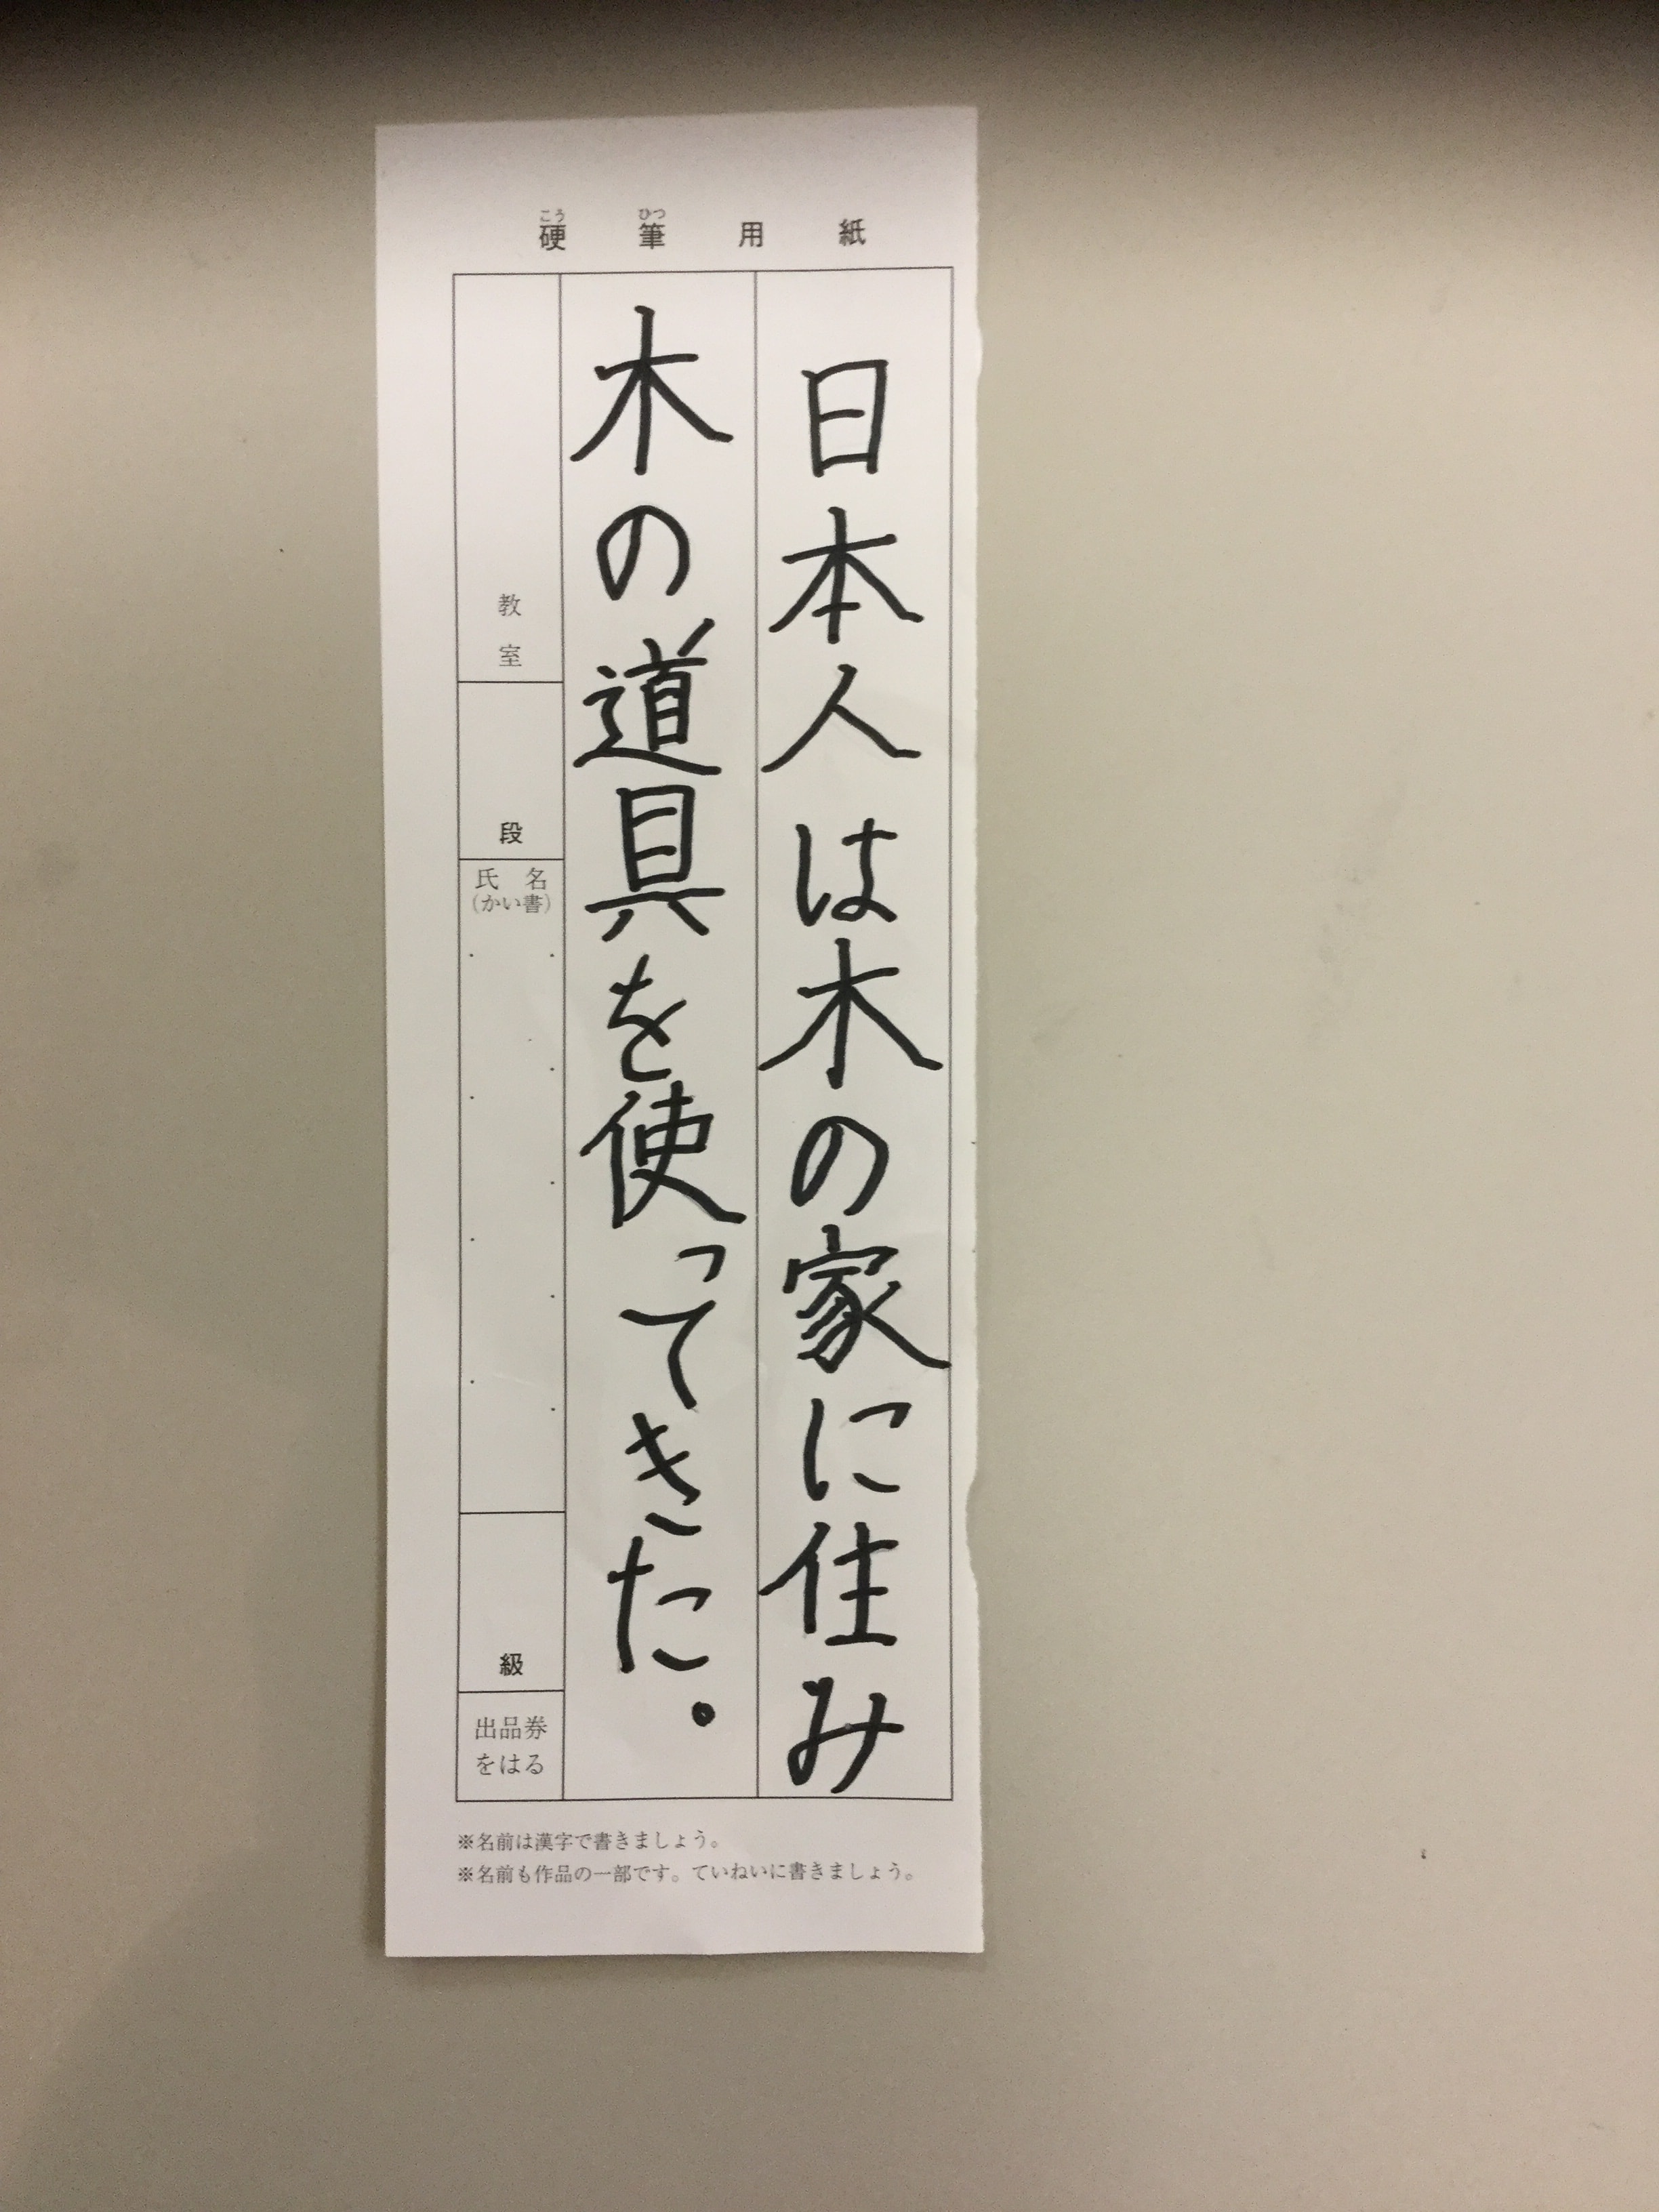 硬筆用紙
こう ひつ
日本人は木の家に住み
木の道具を使ってきた。
教室
段
氏名
(かい書)
級
出品券
をはる
※名前は漢字で書きましょう。
※名前も作品の一部です。ていねいに書きましょう。